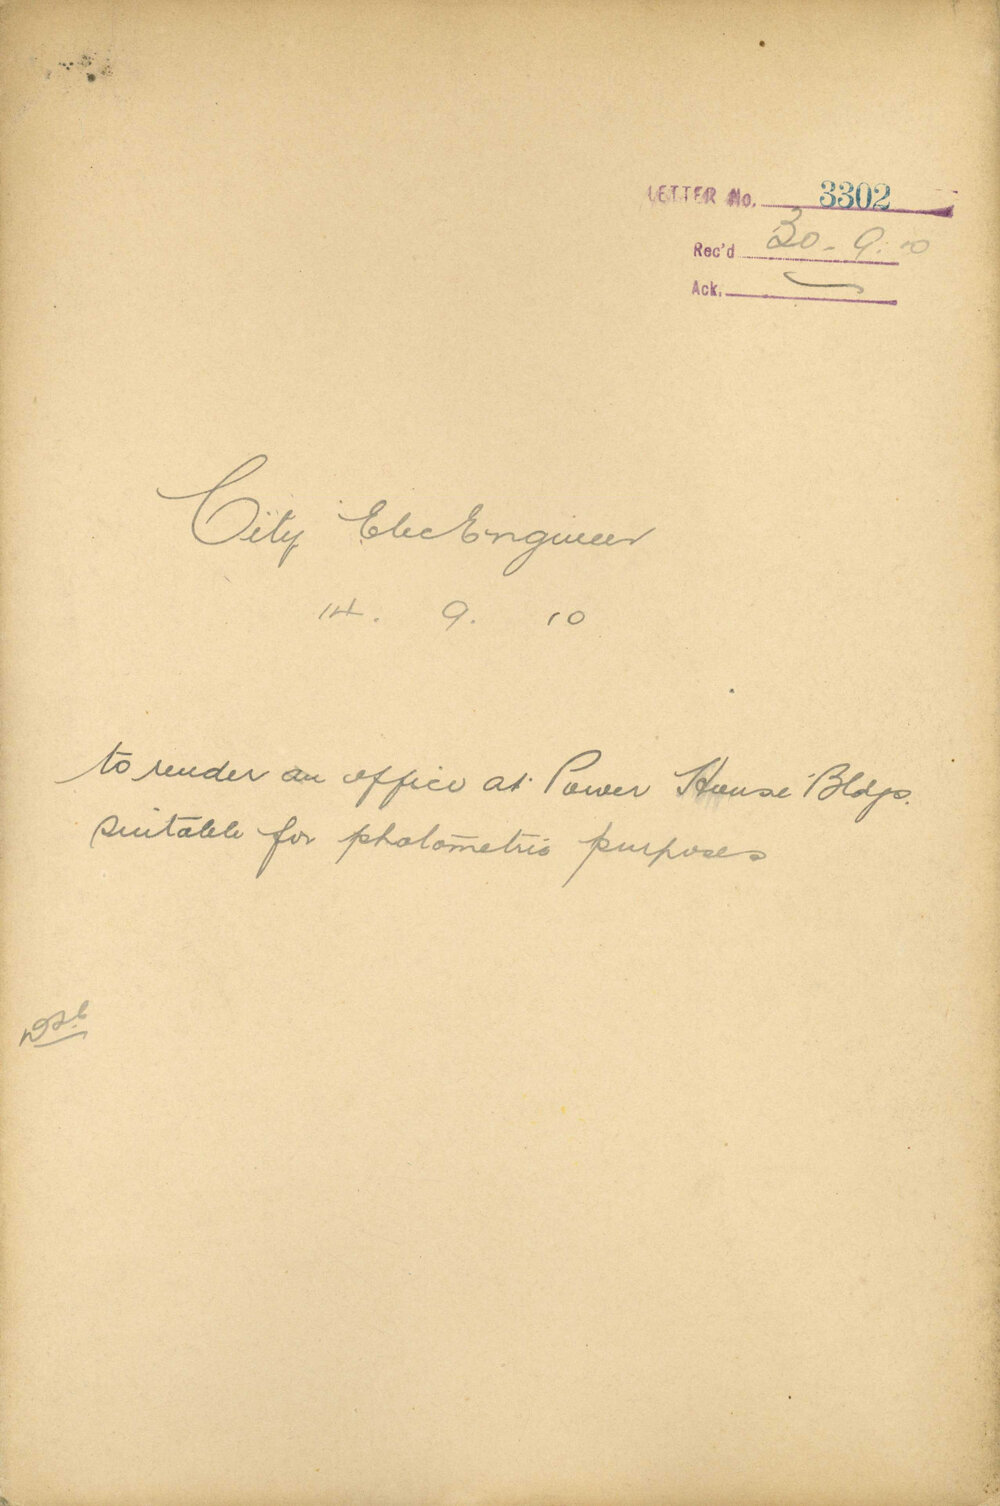 LETTER No. 3302
Rec'd 30-9.10
Ack.
City Elec Engineer
14. 9. 10
to render an office at Power House Bldgs.
suitable for photometric purposes